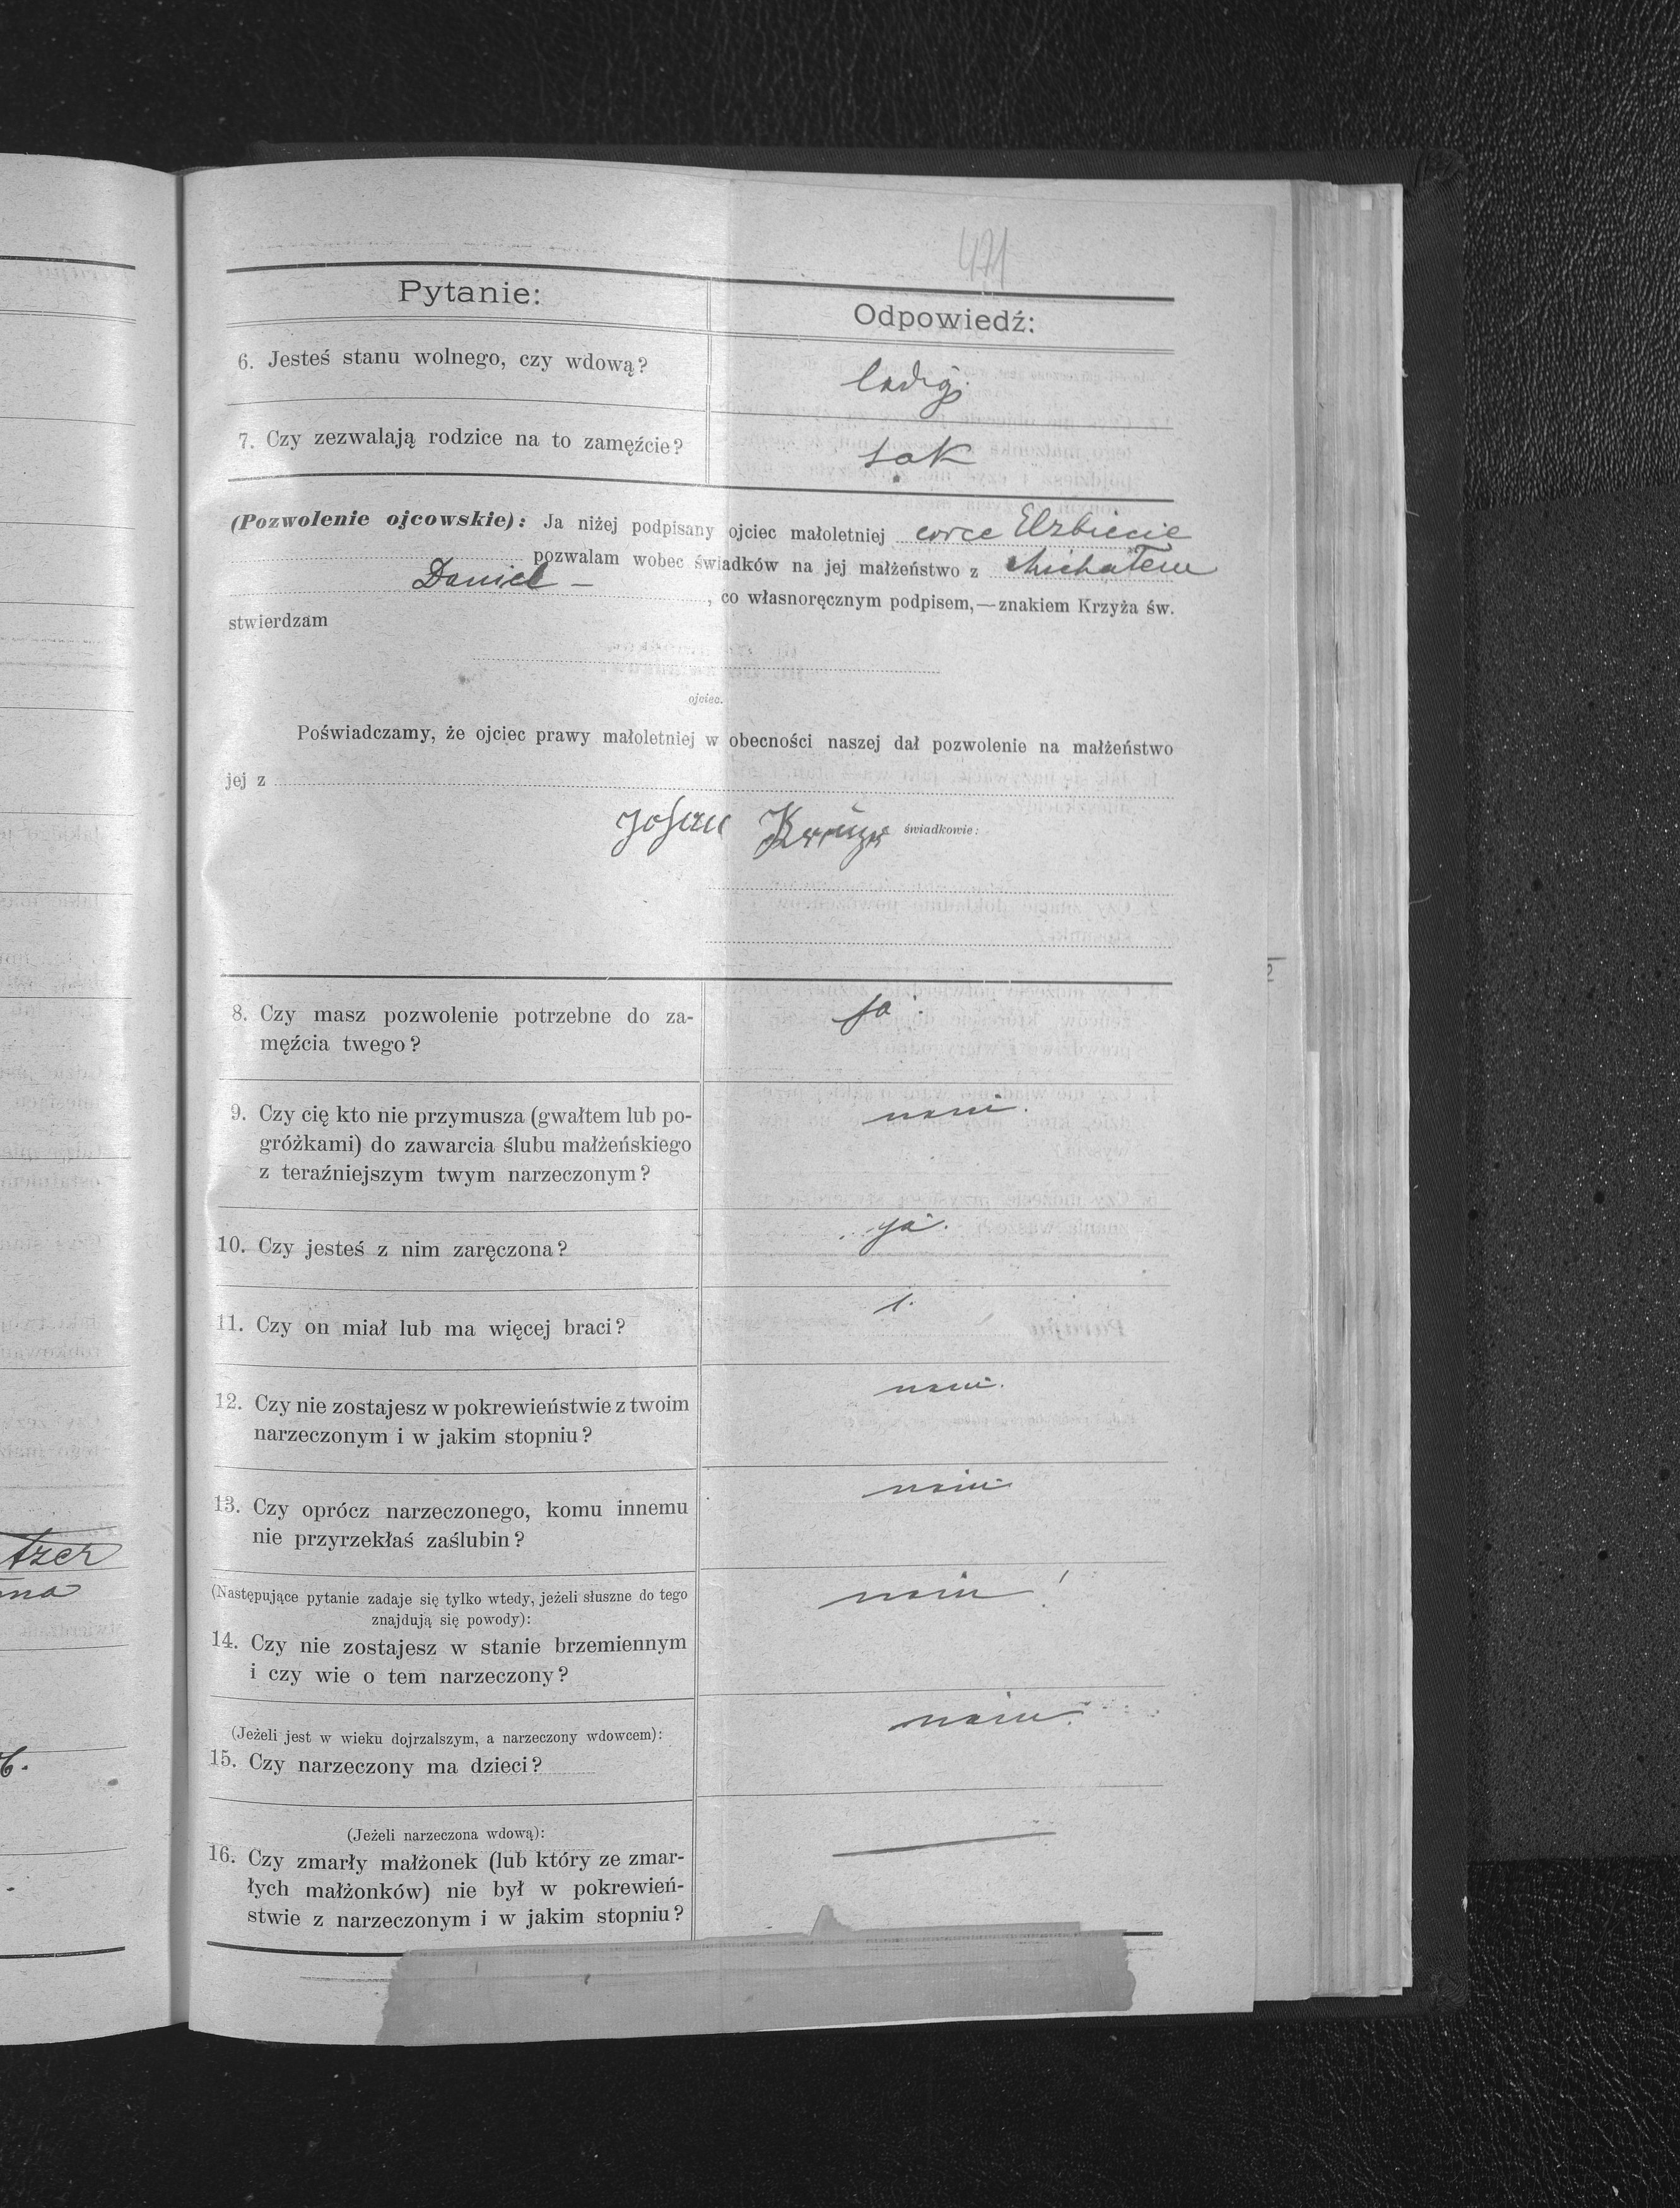 471
Pytanie:
Odpowiedź:
6. Jesteś stanu wolnego, czy wdową?
ledig.
7. Czy zezwalają rodzice na to zamęźcie?
tak
(Pozwolenie ojcowskie): Ja niżej podpisany ojciec małoletniej corce Elzbiecie
pozwalam wobec świadków na jej małżeństwo z Michałem
Daniel — , co własnoręcznym podpisem,—znakiem Krzyża św.
stwierdzam
ojciec.
Poświadczamy, że ojciec prawy małoletniej w obecności naszej dał pozwolenie na małżeństwo
jej z
Johann świadkowie:
8. Czy masz pozwolenie potrzebne do za-
męźcia twego?
ja
9. Czy cię kto nie przymusza (gwałtem lub po-
gróżkami) do zawarcia ślubu małżeńskiego
z teraźniejszym twym narzeczonym?
nein.
10. Czy jesteś z nim zaręczona?
ja.
11. Czy on miał lub ma więcej braci?
1.
12. Czy nie zostajesz w pokrewieństwie z twoim
narzeczonym i w jakim stopniu?
nein.
13. Czy oprócz narzeczonego, komu innemu
nie przyrzekłaś zaślubin?
nein
(Następujące pytanie zadaje się tylko wtedy, jeżeli słuszne do tego
znajdują się powody):
14. Czy nie zostajesz w stanie brzemiennym
i czy wie o tem narzeczony?
nein!
(Jeżeli jest w wieku dojrzalszym, a narzeczony wdowcem):
15. Czy narzeczony ma dzieci?
nein.
(Jeżeli narzeczona wdową):
16. Czy zmarły małżonek (lub który ze zmar-
łych małżonków) nie był w pokrewień-
stwie z narzeczonym i w jakim stopniu?